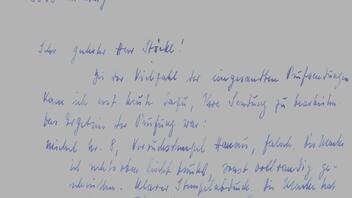 Sehr geehrter Herr Stöckl!
Bei der Vielzahl der eingesandten Prüfsendungen
kam ich erst heute dazu, Ihre Sendung zu bearbeiten
Das Ergebnis der Prüfung war:
Michel Nr. 8, Vorsichtsmangel Hannover, falsch. Die Marke
ist rechts oben leicht dünn, sonst vollrandig ge-
schnitten. Klarer Stempelabdruck. Die Marke hat